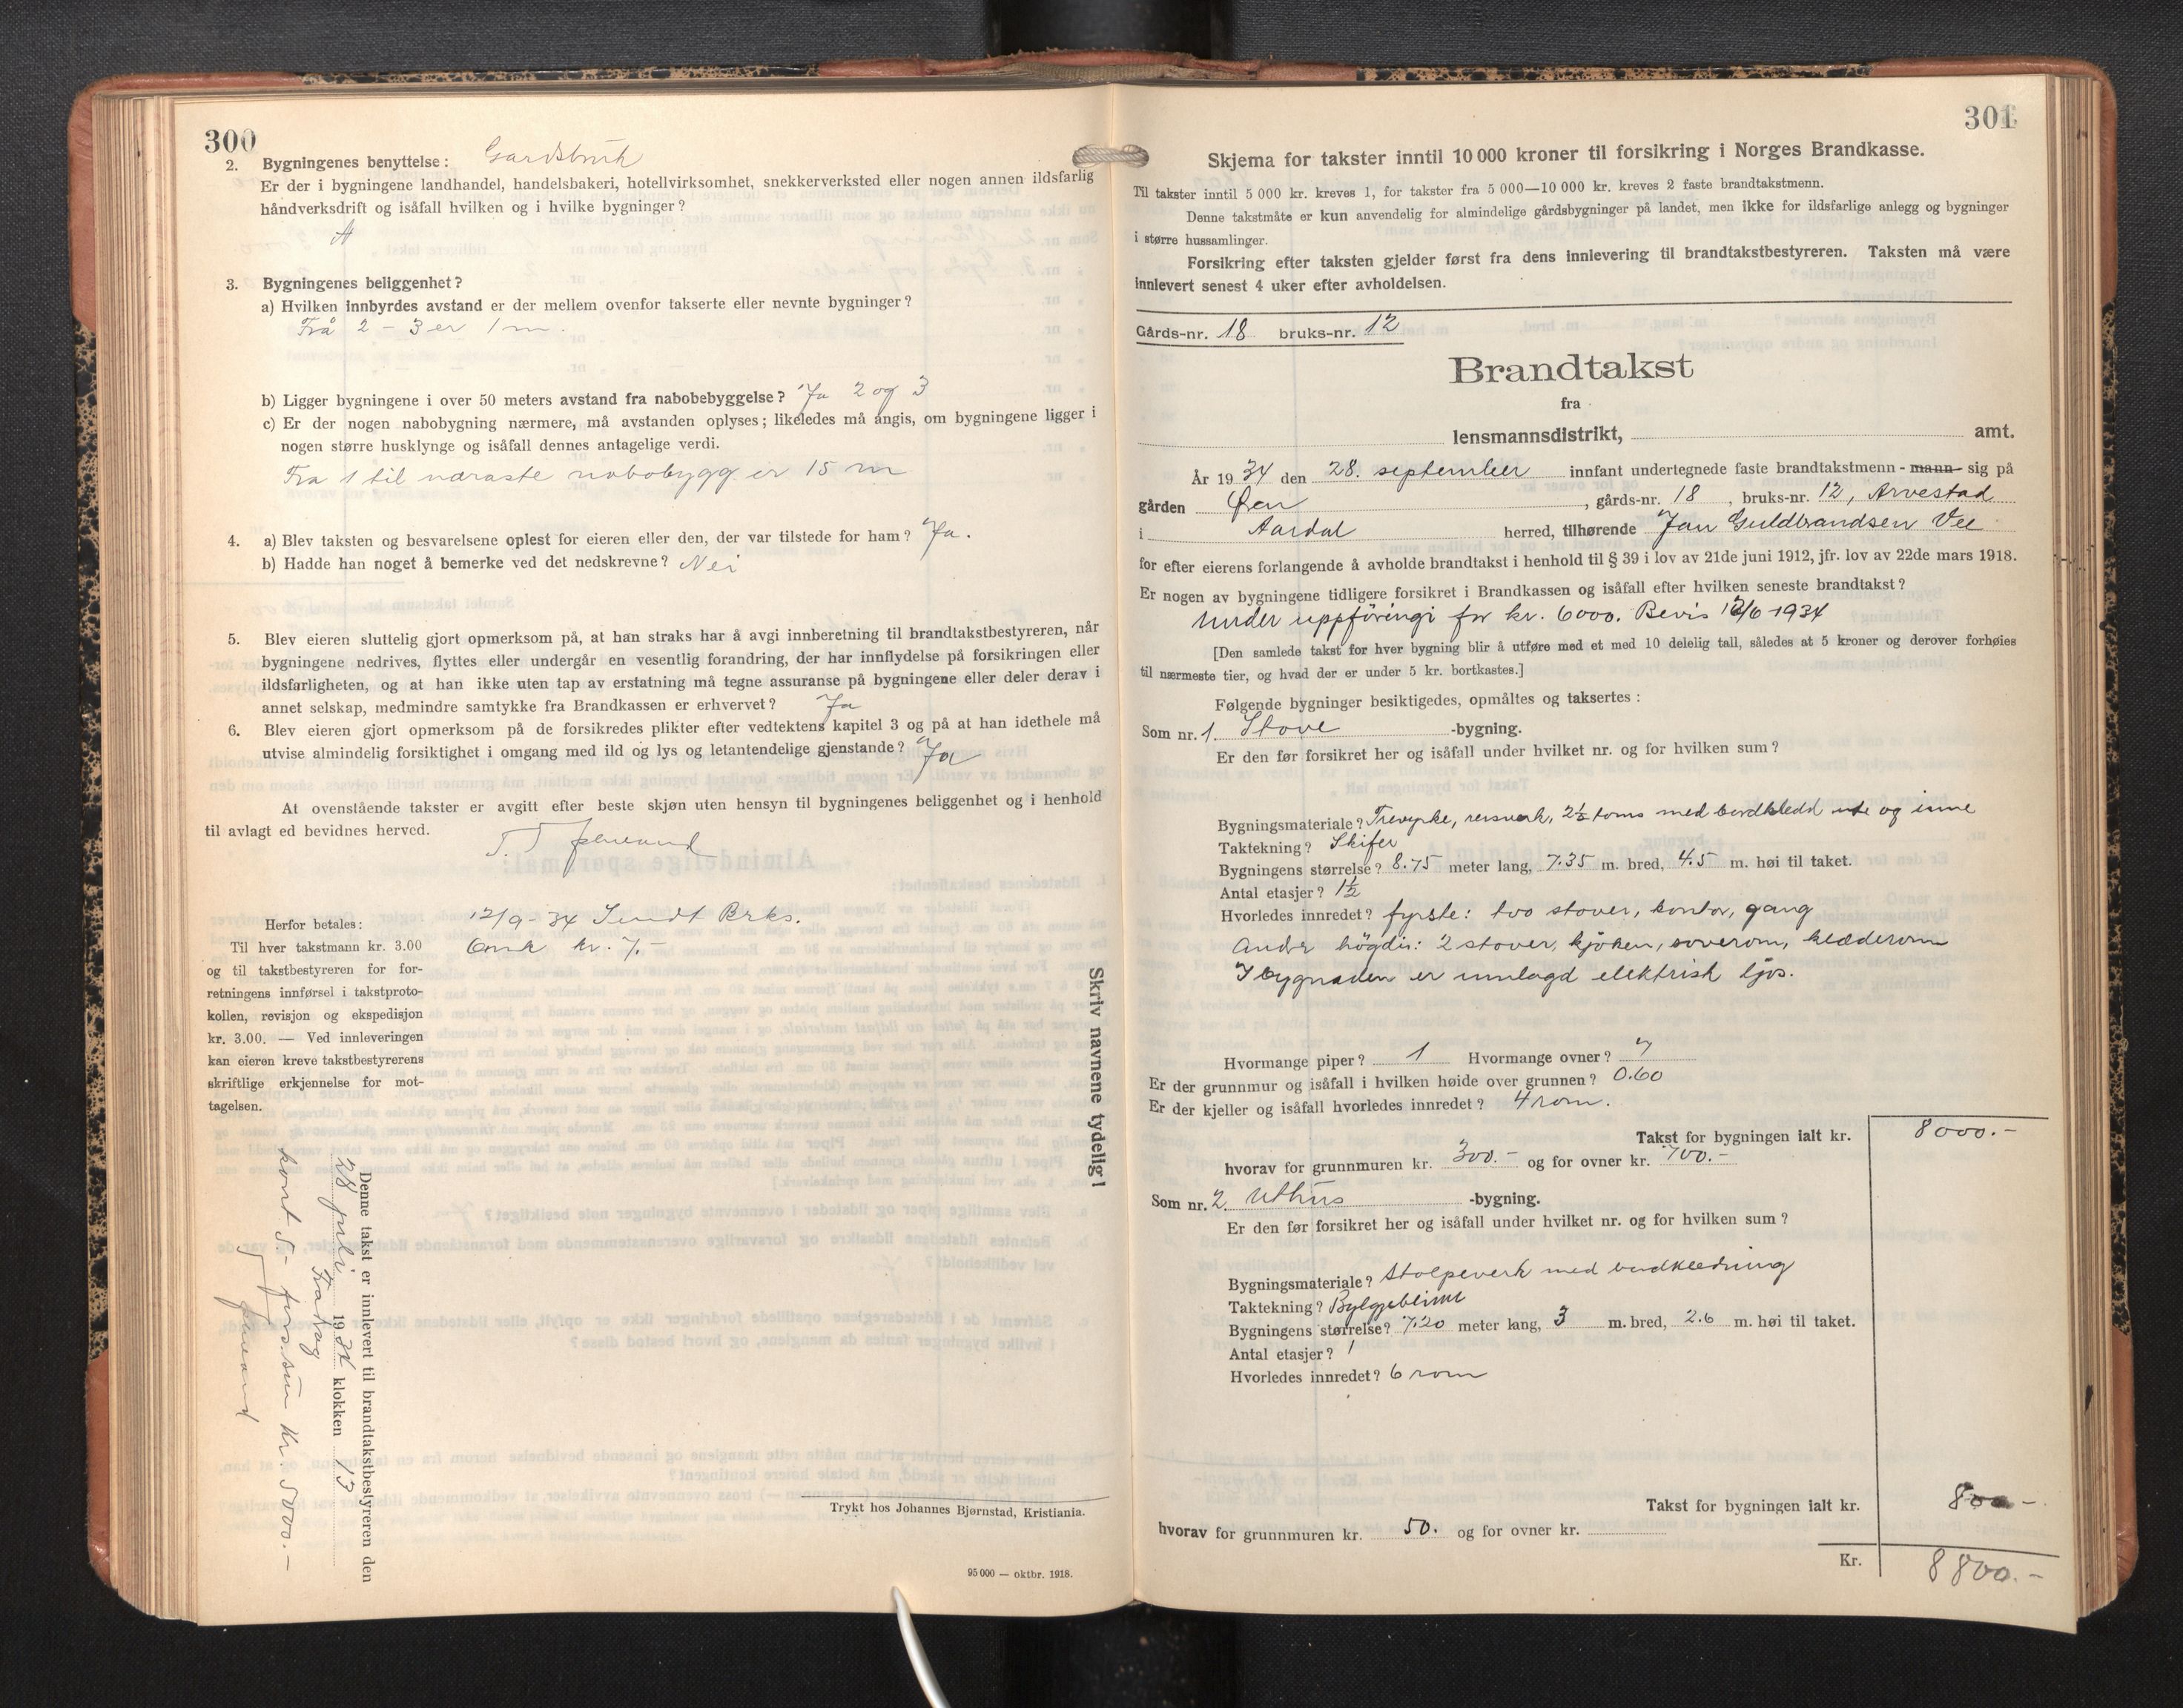 300
2. Bygningenes benyttelse: Gardsbruk
Er der i bygningene landhandel, handelsbakeri, hotellvirksomhet, snekkerverksted eller nogen annen ildsfarlig
håndverksdrift og isåfall hvilken og i hvilke bygninger?
3. Bygningenes beliggenhet?
a) Hvilken innbyrdes avstand er der mellem ovenfor takserte eller nevnte bygninger?
Frå 2 - 3 er 1 m.
b) Ligger bygningene i over 50 meters avstand fra nabobebyggelse? Ja 2 og 3
c) Er der nogen nabobygning nærmere, må avstanden oplyses; likeledes må angis, om bygningene ligger i
nogen større husklynge og isåfall dennes antagelige verdi.
Fra 1 til næraste nabobygg er 15 m
4. a) Blev taksten og besvarelsene oplest for eieren eller den, der var tilstede for ham? Ja.
b) Hadde han noget å bemerke ved det nedskrevne? Nei
5. Blev eieren sluttelig gjort opmerksom på, at han straks har å avgi innberetning til brandtakstbestyreren, når
bygningene nedrives, flyttes eller undergår en vesentlig forandring, der har innflydelse på forsikringen eller
ildsfarligheten, og at han ikke uten tap av erstatning må tegne assuranse på bygningene eller deler derav i
annet selskap, medmindre samtykke fra Brandkassen er erhvervet? Ja
6. Blev eieren gjort opmerksom på de forsikredes plikter efter vedtektens kapitel 3 og på at han idethele må
utvise almindelig forsiktighet i omgang med ild og lys og letantendelige gjenstande? Ja
At ovenstående takster er avgitt efter beste skjøn uten hensyn til bygningenes beliggenhet og i henhold
til avlagt ed bevidnes herved.
Herfor betales:
Til hver takstmann kr. 3.00
og til takstbestyreren for for-
retningens innførsel i takstproto-
kollen, revisjon og ekspedisjon
kr. 3.00. — Ved innleveringen
kan eieren kreve takstbestyrerens
skriftlige erkjennelse for mot-
tagelsen.
12/9-34 Sendt Brks.
Omk kr. 7.-
Skriv navnene tydelig!
Denne takst er innlevert til brandtakstbestyreren den
28 juli 1934 klokken 13
kont 5- fors.sum Kr. 5000.-
Trykt hos Johannes Bjørnstad, Kristiania.
95 000 — oktbr. 1918.
301
Skjema for takster inntil 10 000 kroner til forsikring i Norges Brandkasse.
Til takster inntil 5 000 kr. kreves 1, for takster fra 5 000—10 000 kr. kreves 2 faste brandtakstmenn.
Denne takstmåte er kun anvendelig for almindelige gårdsbygninger på landet, men ikke for ildsfarlige anlegg og bygninger
i større hussamlinger.
Forsikring efter taksten gjelder først fra dens innlevering til brandtakstbestyreren. Taksten må være
innlevert senest 4 uker efter avholdelsen.
Gårds-nr. 18 bruks-nr. 12
Brandtakst
fra
lensmannsdistrikt, amt.
År 1934 den 28. september innfant undertegnede faste brandtakstmenn - mann- sig på
gården Øren, gårds-nr. 18, bruks-nr. 12, Arvestad
i Aardal herred, tilhørende Jan Guldbrandsen Vee
for efter eierens forlangende å avholde brandtakst i henhold til § 39 i lov av 21de juni 1912, jfr. lov av 22de mars 1918.
Er nogen av bygningene tidligere forsikret i Brandkassen og isåfall efter hvilken seneste brandtakst?
Under uppföringi for kr. 6000. Bevis 12/6-1934
[Den samlede takst for hver bygning blir å utføre med et med 10 delelig tall, således at 5 kroner og derover forhøies
til nærmeste tier, og hvad der er under 5 kr. bortkastes.]
Følgende bygninger besiktigedes, opmåltes og taksertes:
Som nr. 1. Stove -bygning.
Er den før forsikret her og isåfall under hvilket nr. og for hvilken sum?
Bygningsmateriale? Trevyrke, reisverk, 2½ toms med bordkledd ute og inne
Taktekning? Skifer
Bygningens størrelse? 8.75 meter lang, 7.35 m. bred, 4.5 m. høi til taket.
Antal etasjer? 1½
Hvorledes innredet? fyrste: tvo stover, kontor, gang
Andr högdir: 2 stover, kjöken, soverom, klæderom
I bygnaden er innlagd elektrisk ljos.
Hvormange piper? 1 Hvormange ovner? 7
Er der grunnmur og isåfall i hvilken høide over grunnen? 0.60
Er der kjeller og isåfall hvorledes innredet? 4 rom.
Takst for bygningen ialt kr. 8000.-
hvorav for grunnmuren kr. 300.- og for ovner kr. 700.-
Som nr. 2. Uthus -bygning.
Er den før forsikret her og isåfall under hvilket nr. og for hvilken sum?
Bygningsmateriale? Stolpeverk med bordkledning
Taktekning? Bylgjeblikk
Bygningens størrelse? 7.20 meter lang, 3 m. bred, 2.6 m. høi til taket.
Antal etasjer? 1
Hvorledes innredet? 6 rom
Takst for bygningen ialt kr. 800-
hvorav for grunnmuren kr. 50. og for ovner kr.
Kr. 8800.-